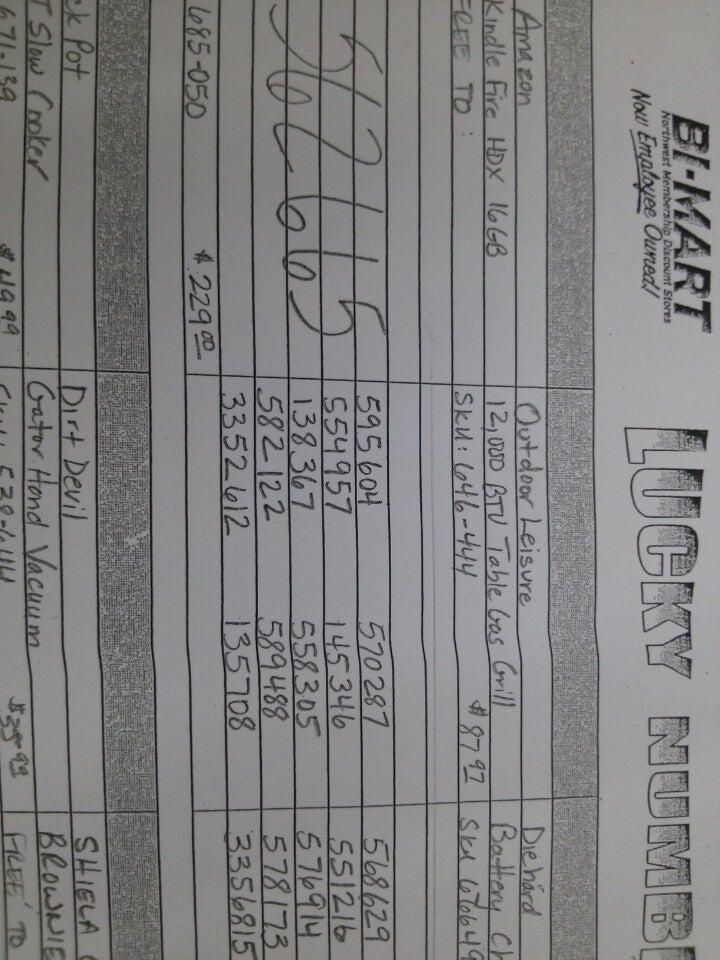 BI-MART
Northwest Membership Discount Stores
Now Employee Owned!
LUCKY NUMB
Amazon
Kindle Fire HDX 16GB
FREE TO:
562665
685-050 $229.00
Outdoor Leisure
12,000 BTU Table Gas Grill
SKU: 646-444 $87.97
595604 570287
554957 145346
138367 558305
582122 589488
3352612 135708
Diehard
Battery Ch
SKU 676649
568629
551216
576914
578173
3356815
ck Pot
T Slow Cooker
671-139 $49.99
Dirt Devil
Gator Hand Vacuum
SHIELA
BROWNIE
FREE TO